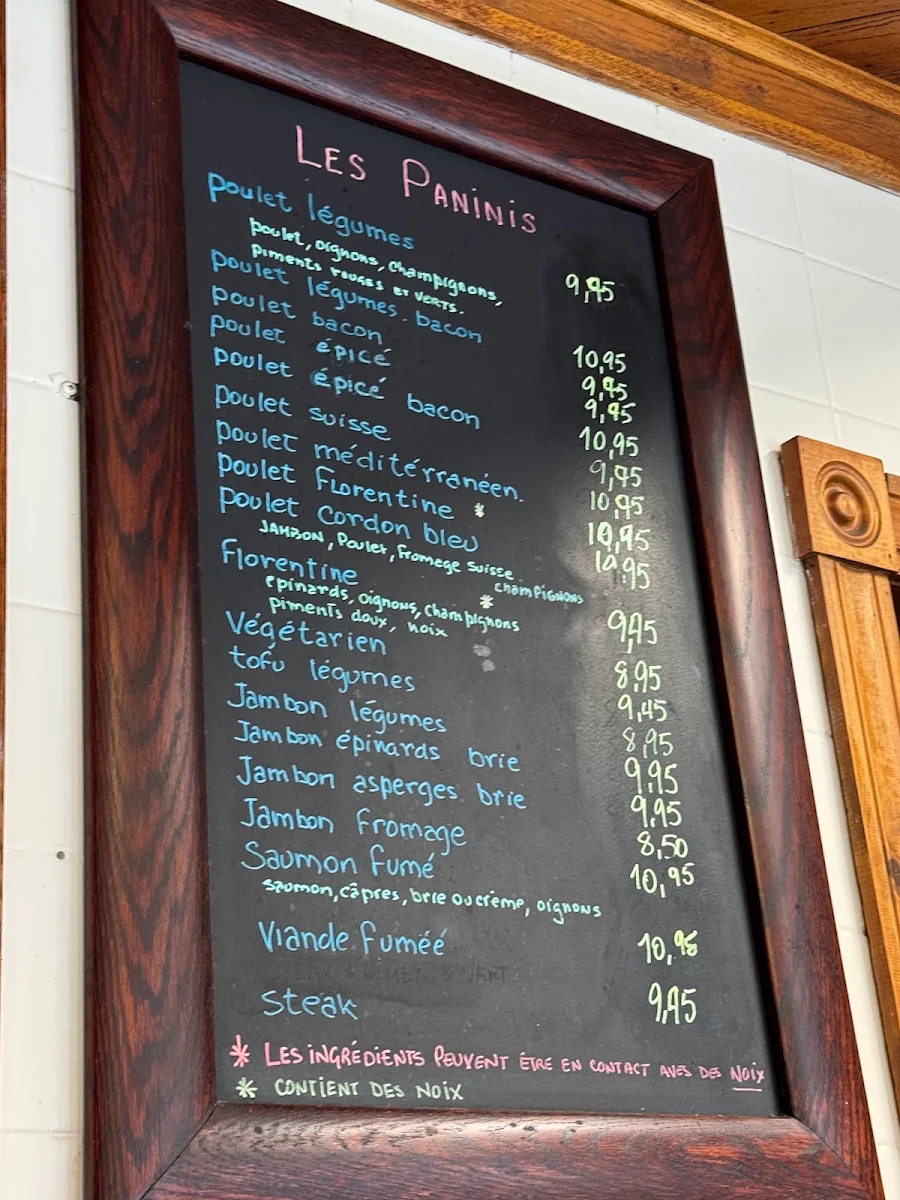 LES PANINIS
poulet légumes
poulet, oignons, champignons,
piments rouges et verts. 9,95
poulet légumes. bacon 10,95
poulet bacon 9,95
poulet épicé 9,95
poulet épicé bacon 10,95
poulet suisse 9,95
poulet méditérranéen. 10,95
poulet Florentine * 10,95
poulet cordon bleu 10,95
JAMBON, Poulet, Fromege suisse
champignons
Florentine * 9,45
épinards, oignons, champignons
piments doux, noix
Végétarien 8,95
tofu légumes 9,45
Jambon légumes 8,95
Jambon épinards brie 9,95
Jambon asperges brie 9,95
Jambon fromage 8,50
Saumon fumé 10,95
saumon, câpres, brie ou crème, oignons
Viande fuméé 10,95
Steak 9,45
* LES INGRÉDIENTS PEUVENT ÊTRE EN CONTACT AVES DES NOIX
* CONTIENT DES NOIX